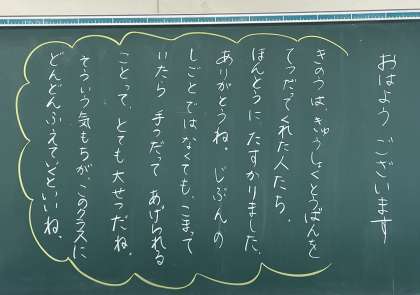 おはよう ございます
きのうは、きゅうしょくとうばんを
てつだってくれた人たち、
ほんとうに たすかりました。
ありがとうね。じぶんの
しごとではなくても、こまって
いたら 手つだって あげられる
ことって、とても大せつだね。
そういう気もちが、このクラスに
どんどんふえていくといいね。